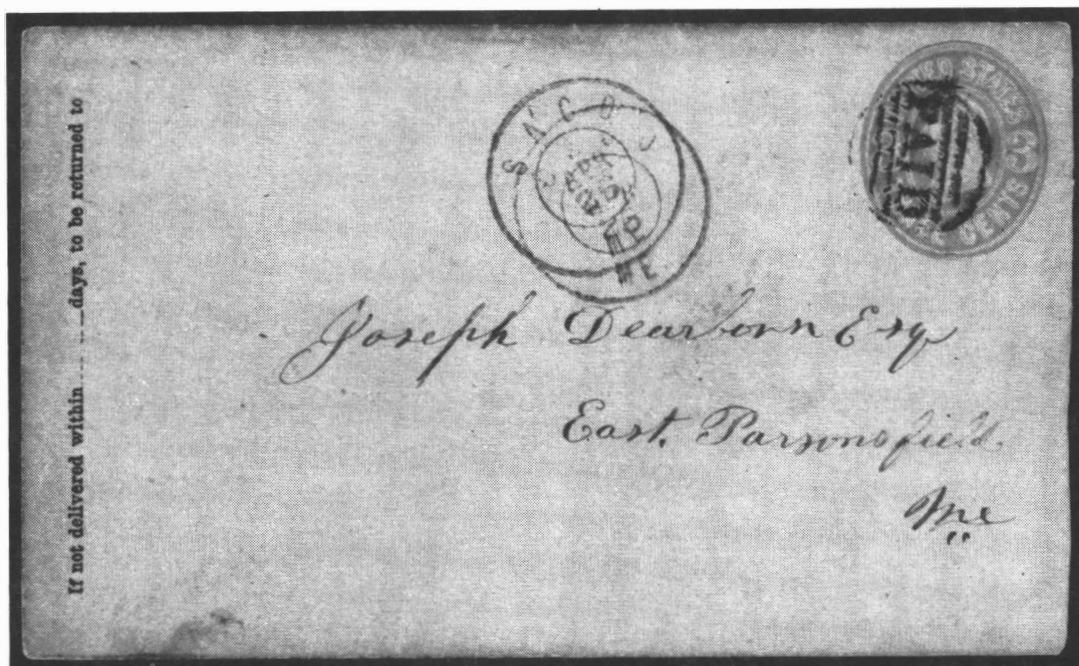 If not delivered within ........ days, to be returned to
SACO
ME
ME
UNITED STATES
CENTS
PAID
Joseph Dearborn Esq
East. Parsonsfield.
Me